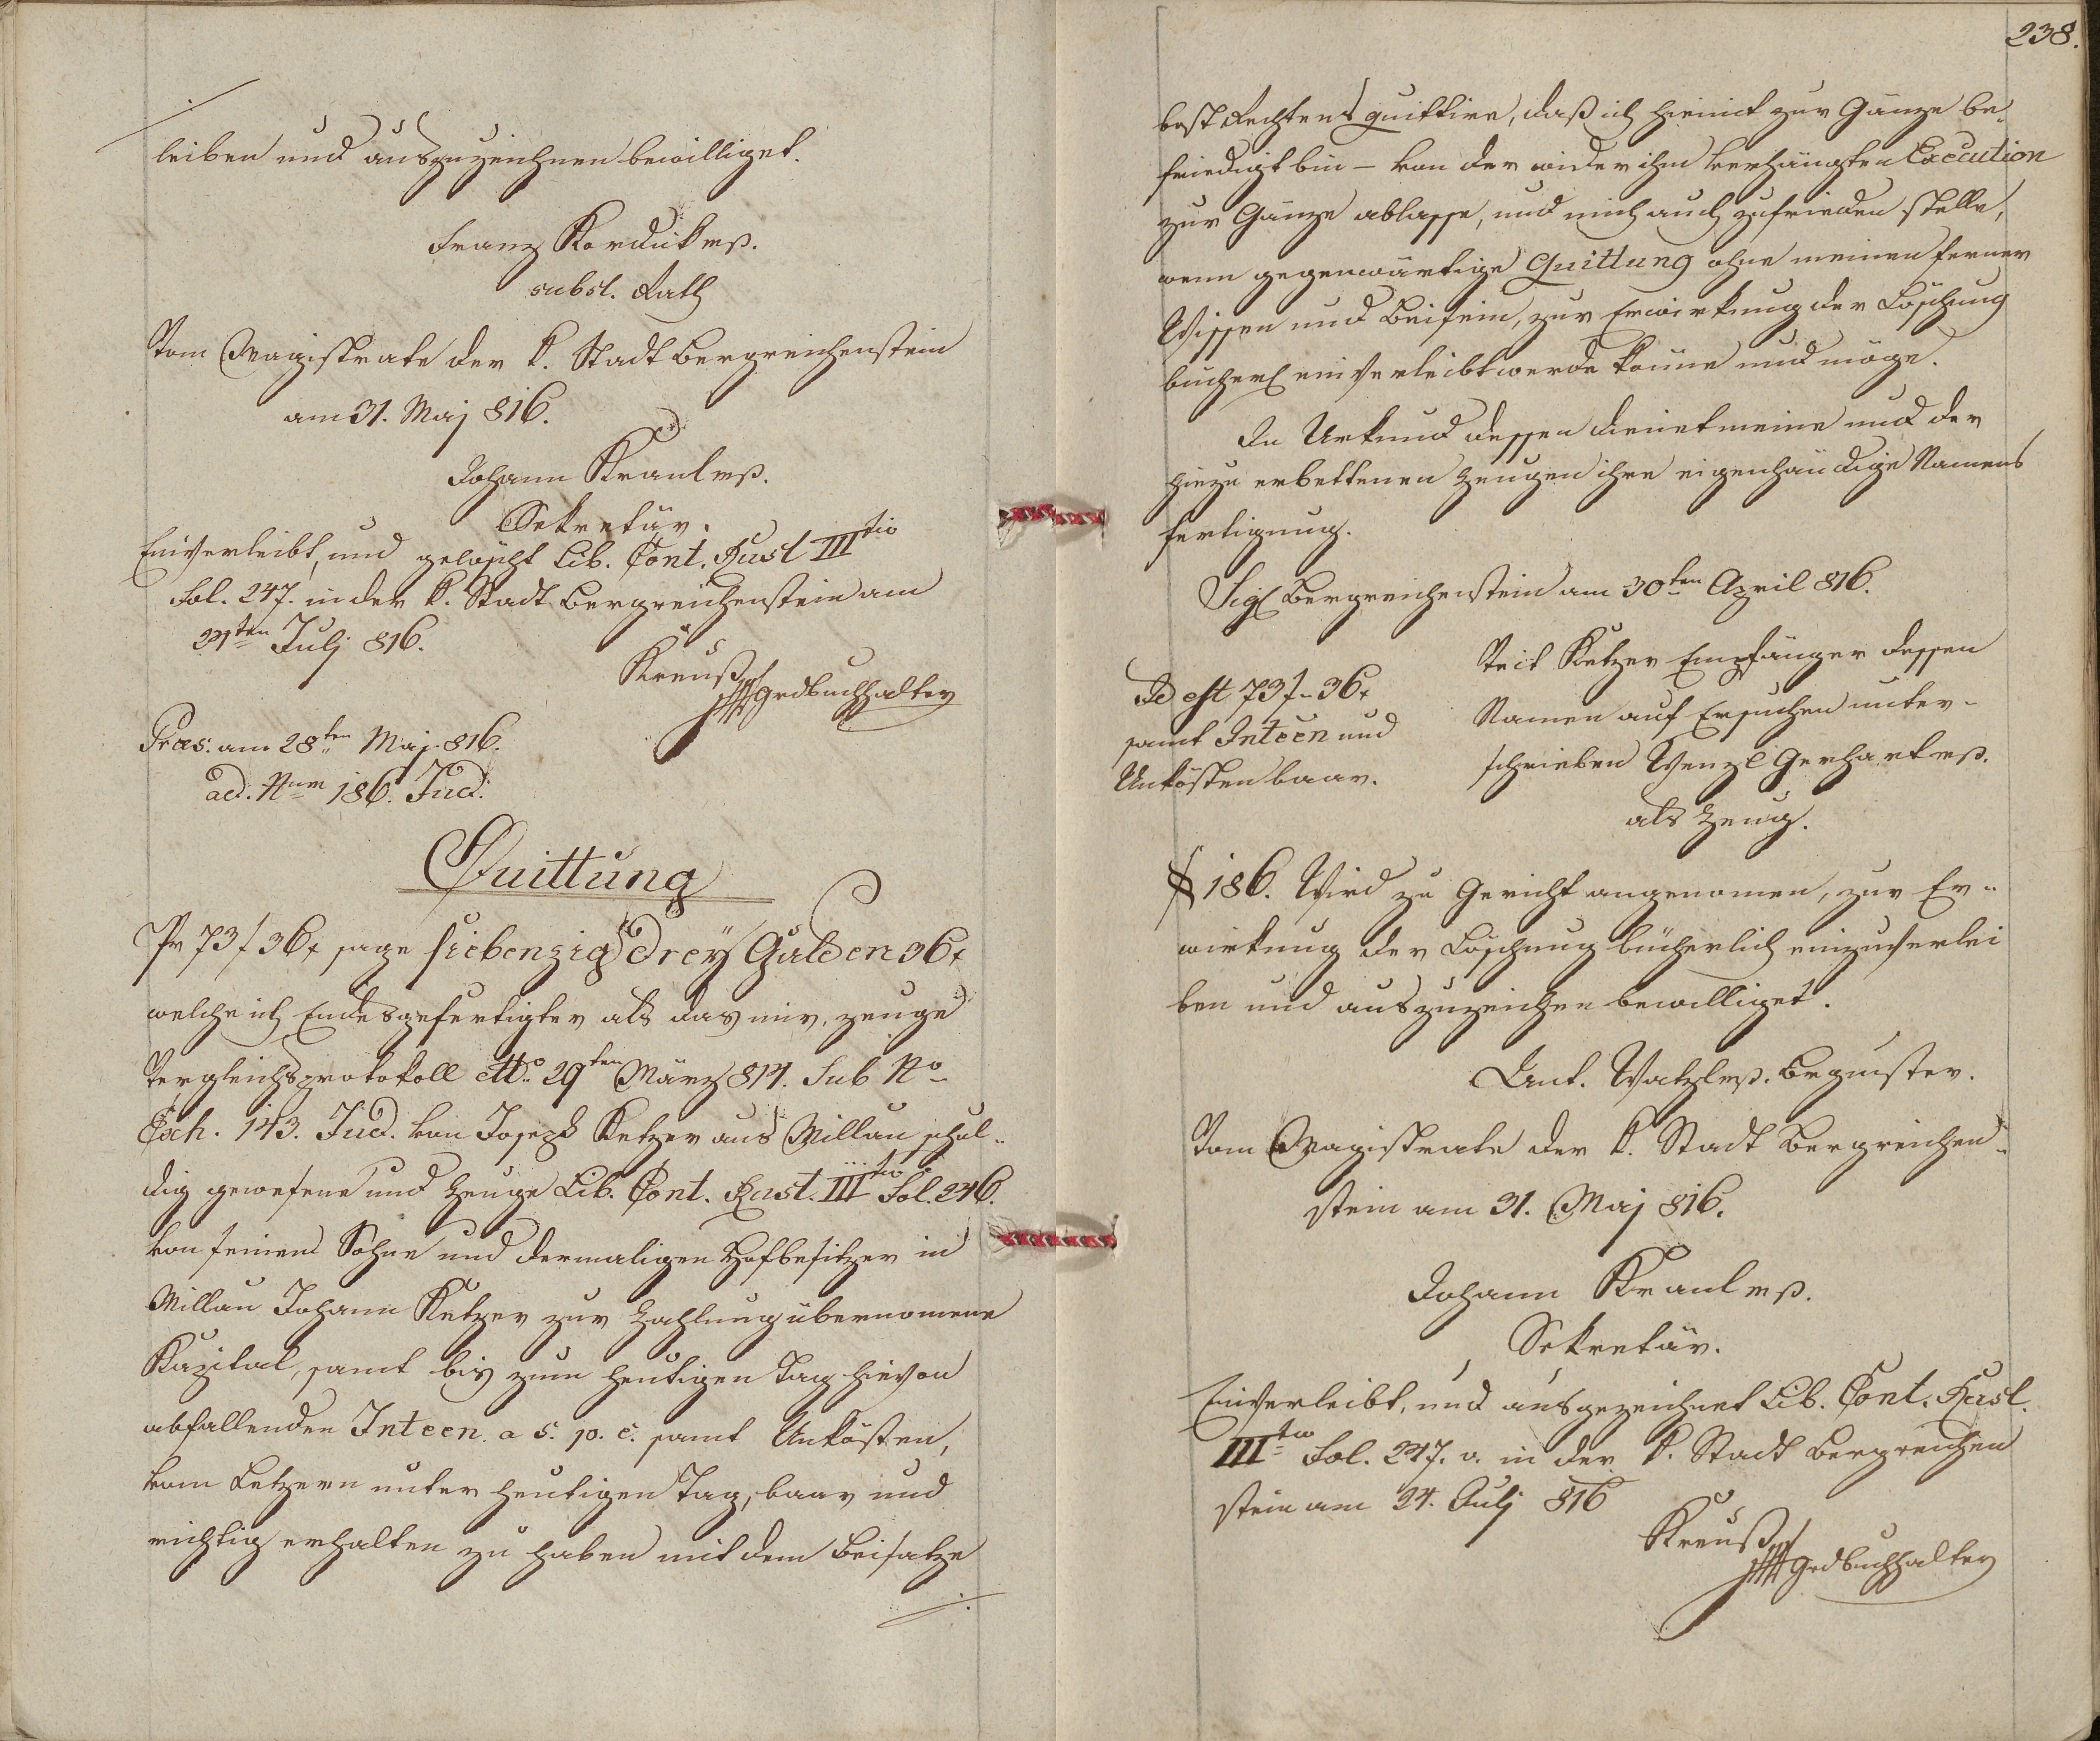 leiben und auszuzeichnen bewilliget.
Franz Kordik mp.
subst. Rath
Vom Magistrate der k. Stadt Bergreichenstein
am 31. Maj 816.
Johann Kraul mp.
Sekretär.
Einverleibt, und gelöscht Lib. Cont. Rust III tio
Fol. 247. in der k. Stadt Bergreichenstein am
24ten Julj 816.
Kreuß
Grdbuchhalter
Præs: am 28ten Maj 816.
ad. Num 186. Jud.
Quittung
Pr 73 f 36 x sage siebenzig Drey Gulden 36 x
welche ich Endesgefertigter als das mir, zeuge
Vergleichsprotokoll dtto 29ten März 814. Sub No
Exh. 143. Jud. von Joseph Ketzer aus Millau schul-
dig gewesene und zeuge Lib. Cont. Rust. III tio Fol. 246.
von seinem Sohne und dermaligen Hofbesitzer in
Millau Johann Ketzer zur Zahlung übernomene
Kapital, samt bis zum heutigen Tag hievon
abfallenden Inteen. a 5. p. c. samt Unkosten,
vom Letzern unter heutigen Tag, baar und
richtig erhalten zu haben mit dem Beisatze
./.
238.
best Rechtens quittire, daß ich hiemit zur Gänze be-
friedigt bin – von der wider ihm verhängten Execution
zur Gänze ablasse, und mich auch zufrieden stelle,
wenn gegenwärtige Quittung ohne meinen ferner
Wissen und Beisein, zur Erwirkung der Löschung
bücherl einverleibt werde könne und möge.
In Urkund dessen dienet meine und der
hiezu erbettenen Zeugen ihre eigenhändige Namens
fertigung.
Sigl Bergreichenstein am 30ten April 816.
Id est 73 f 36 x
samt Inteen und
Unkösten baar.
Veit Ketzer Empfänger dessen
Namen auf Ersuchen unter-
schrieben Wenzl Gerhart mp.
als Zeug.
§ 186. Wird zu Gericht angenomen, zur Er-
wirkung der Löschung bücherlich einzuverlei
ben und auszuzeichnen bewilliget.
Ant. Watzl mp. Bgrmster.
Vom Magistrate der k. Stadt Bergreichen-
stein am 31. Maj 816.
Johann Kraul mp.
Sekretär.
Einverleibt, und ausgezeichnet Lib. Cont. Rust.
III tio Fol. 247. v. in der k. Stadt Bergreichen
stein am 24. Julj 816
Kreuß
Grdbuchhalter